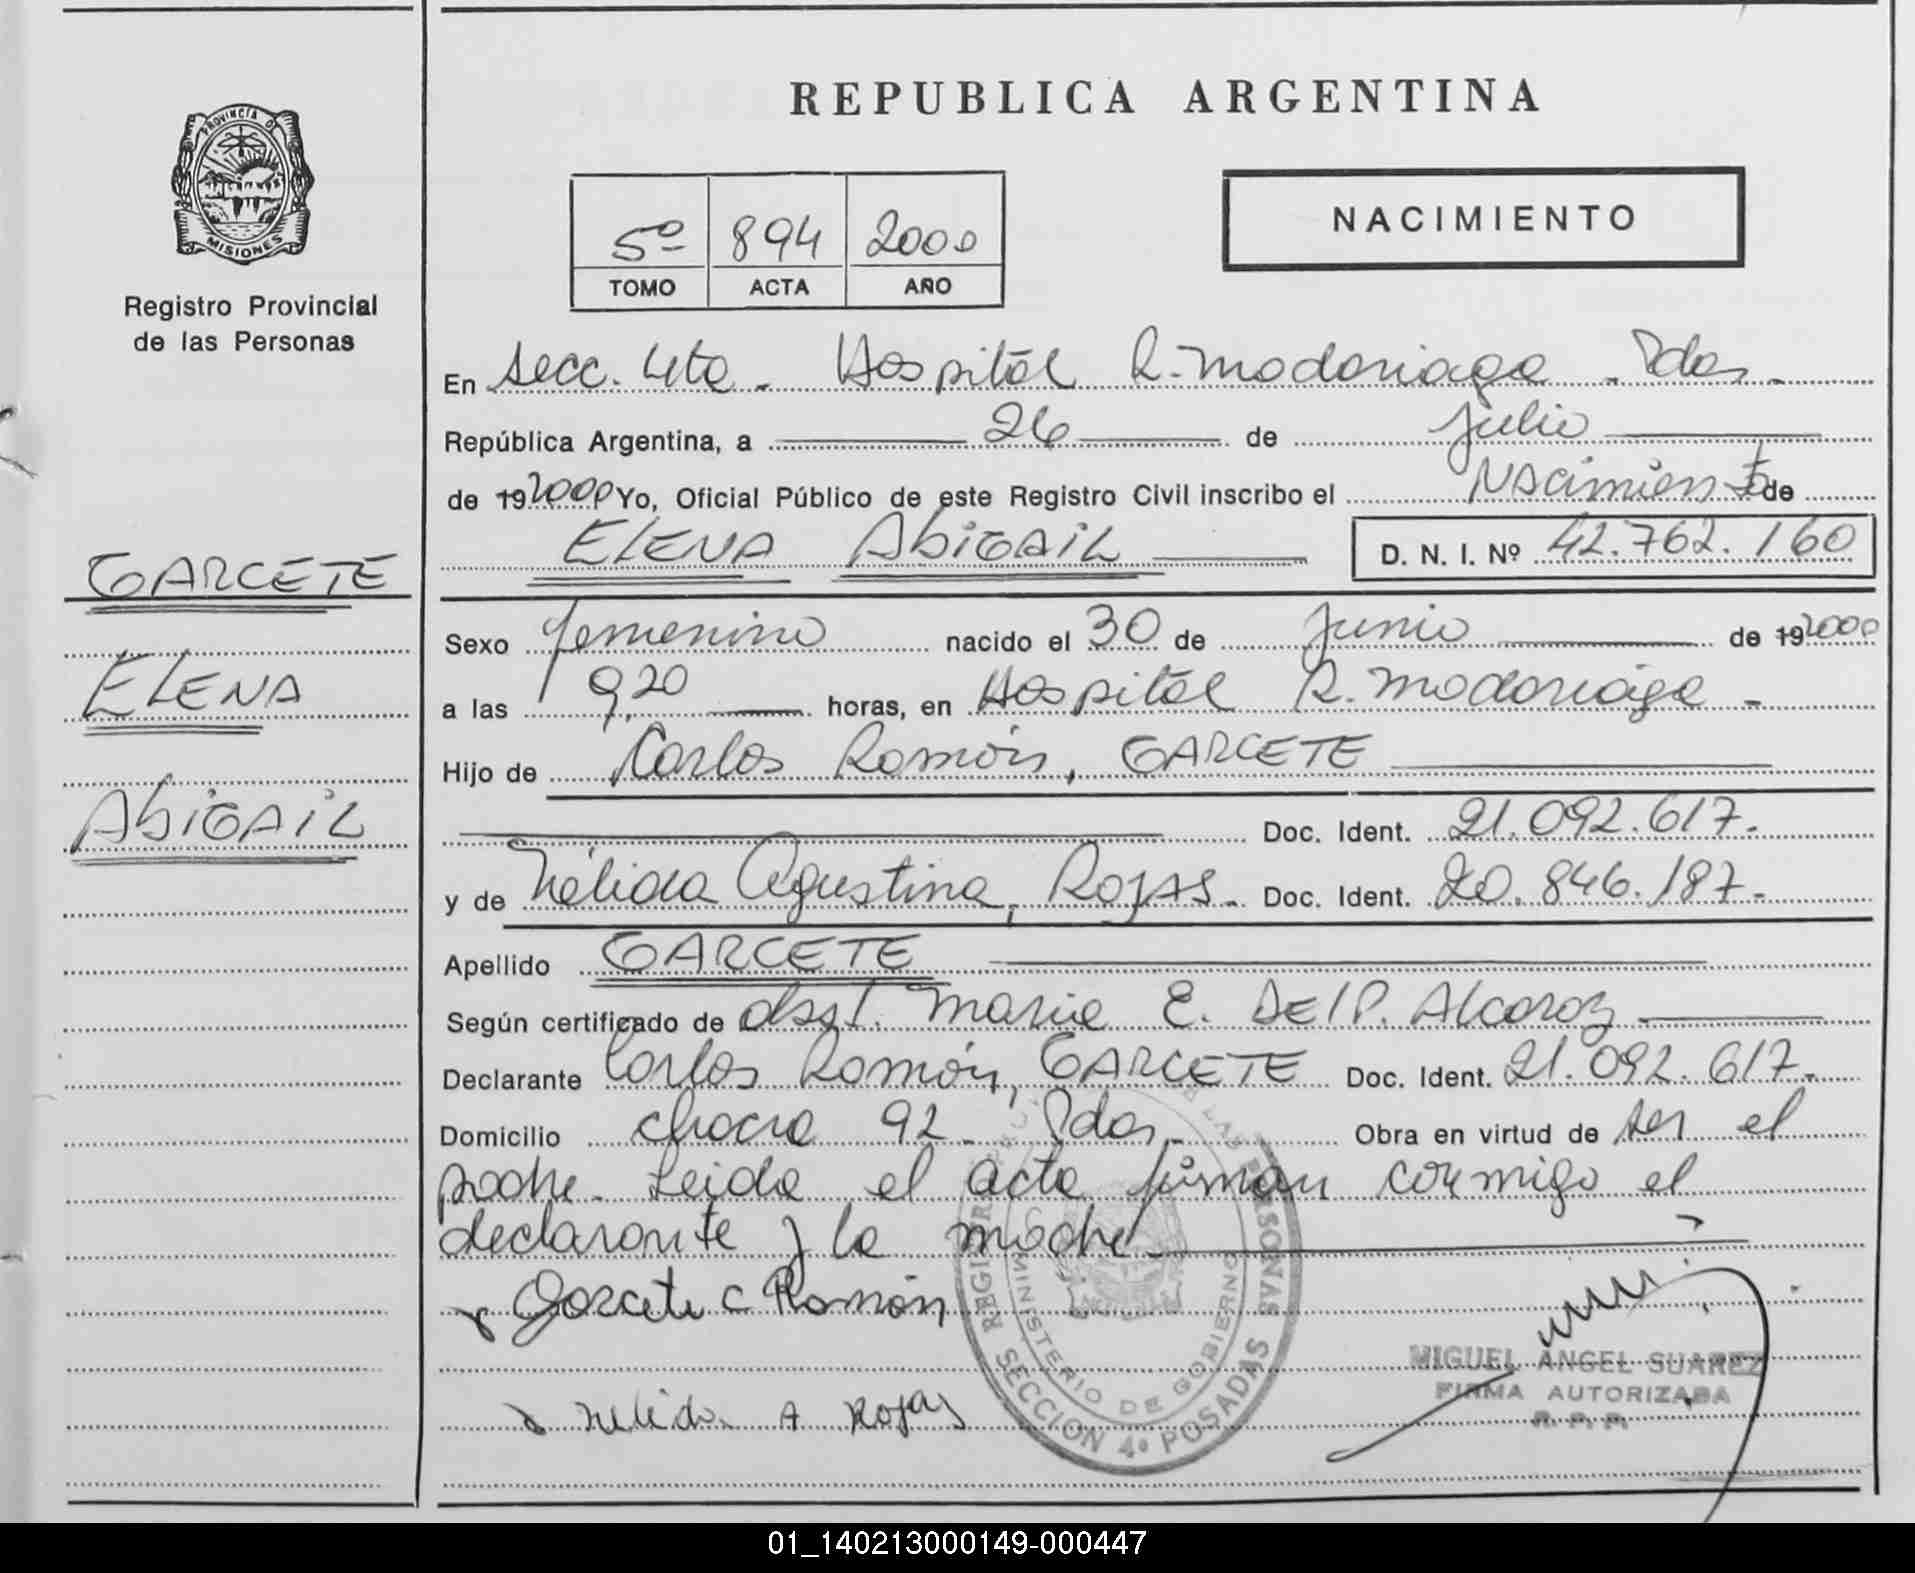 REPUBLICA ARGENTINA
PROVINCIA DE
MISIONES
Registro Provincial
de las Personas
5º 894 2000
TOMO ACTA AÑO
NACIMIENTO
En Secc. 4ta. Hospital R. Madariaga. Pdas.
República Argentina, a 26 de Julio
de 19 2000 Yo, Oficial Público de este Registro Civil inscribo el Nacimiento de
ELENA ABIGAIL D. N. I. Nº 42.762.160
GARCETE
ELENA
ABIGAIL
Sexo femenino nacido el 30 de Junio de 19 2000
a las 9,20 horas, en Hospital R. Madariaga -
Hijo de Carlos Ramón, GARCETE
Doc. Ident. 21.092.617.-
y de Nélida Agustina, ROJAS. Doc. Ident. 20.846.187.-
Apellido GARCETE
Según certificado de obst. Maria E. DEL P. Alcaraz
Declarante Carlos Ramón, GARCETE Doc. Ident. 21.092.617.-
Domicilio chacra 92. Pdas. Obra en virtud de ser el
padre. Leida el acta firman conmigo el
declarante y la madre.
Garcete C Ramón
Nelida A Rojas
MINISTERIO DE GOBIERNO
SECCION 4º POSADAS
MIGUEL ANGEL SUAREZ
FIRMA AUTORIZADA
R. P. P.
01_140213000149-000447